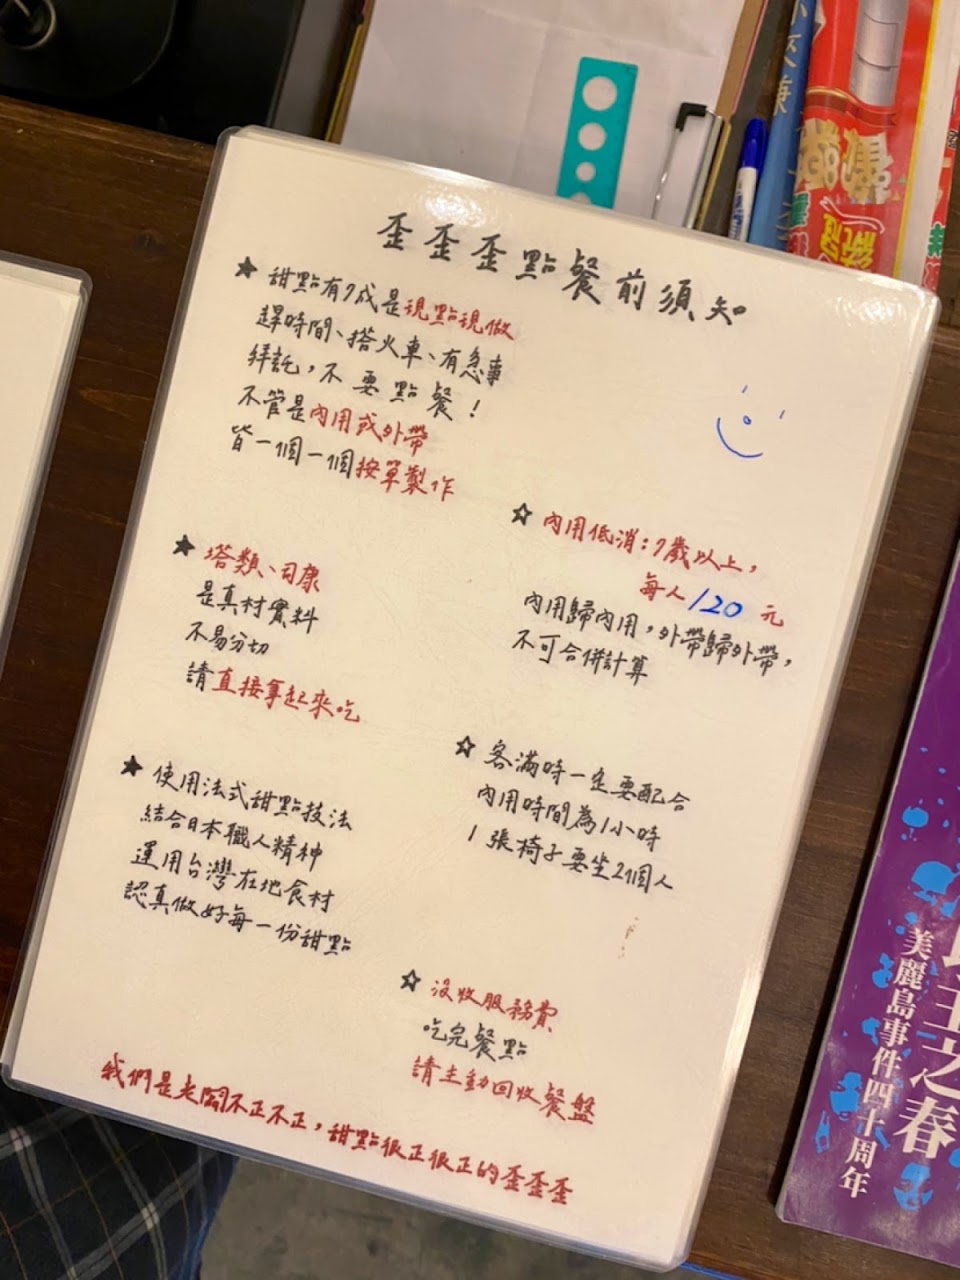 歪歪歪點餐前須知
★ 甜點有7成是現點現做
趕時間、搭火車、有急事
拜託，不要點餐！
不管是內用或外帶
皆一個一個按單製作
★ 塔類、司康
是真材實料
不易分切
請直接拿起來吃
★ 使用法式甜點技法
結合日本職人精神
運用台灣在地食材
認真做好每一份甜點
☆ 內用低消：7歲以上，
每人120元
內用歸內用，外帶歸外帶，
不可合併計算
☆ 客滿時一定要配合
內用時間為1小時
1張椅子要坐21個人
☆ 沒收服務費
吃完餐點
請主動回收餐盤
我們是老闆不正不正，甜點很正很正的歪歪歪
主之春
美麗島事件四十周年